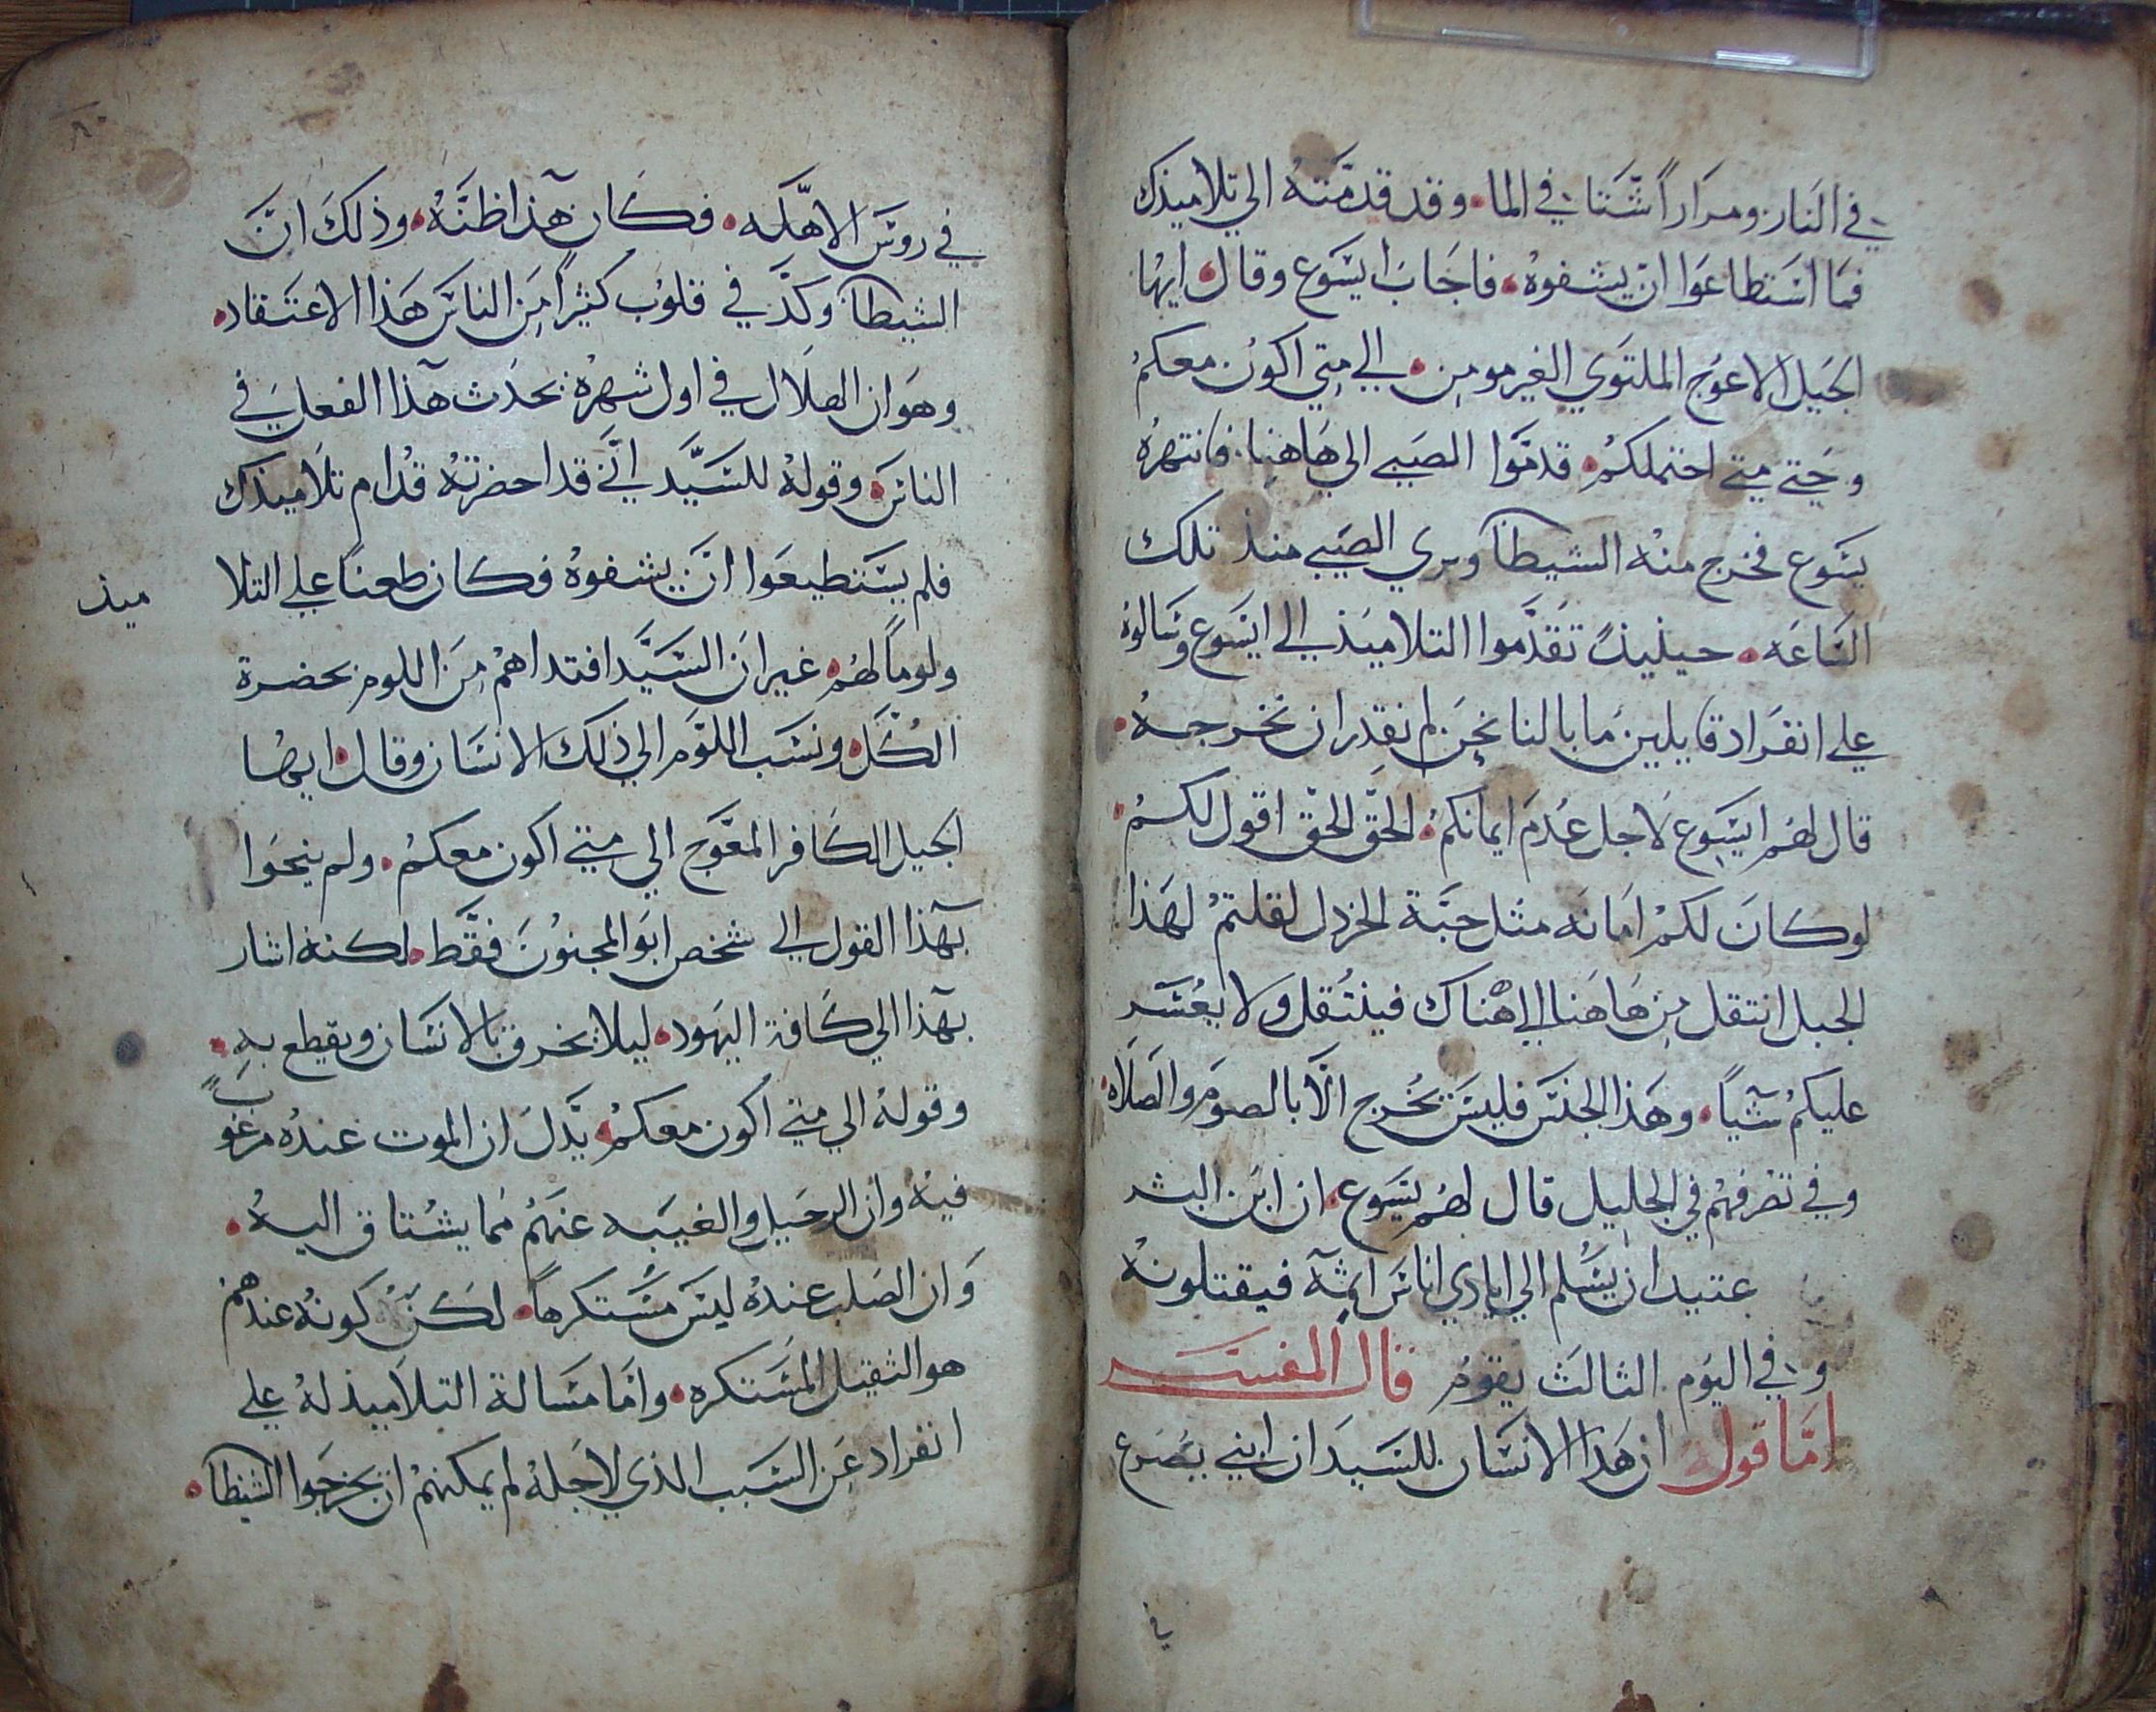 في النار ومراراً شتا في الما۰ وقد قدمته الي تلاميذك
فما استطاعوا ان يشفوه۰ فاجاب ايسوع وقال ايها
الجيل الاعوج الملتوي الغير مومن۰ الي متي اكون معكم
وحتي متي احتملكم۰ قدموا الصبي الي هاهنا. فانتهره
يسوع فخرج منه الشيطان وبري الصبي منذ تلك
الساعه۰ حينيذ تقدموا التلاميذ الي ايسوع وسالوه
علي انفراد قايلين ما بالنا نحن لم نقدر ان نخرجه۰
قال لهم ايسوع لاجل عدم ايمانكم۰ الحق الحق اقول لكم۰
لو كان لكم امانه مثل حبة الخردل لقلتم لهذا
الجبل انتقل من هاهنا الي هناك فينتقل ولا يعسر
عليكم شياً۰ وهذا الجنس فليس يخرج الّا بالصوم والصلاه۰
وفي تصرفهم في الجليل قال لهم يسوع۰ ان ابن البشر
عتيد ان يسلم الي ايادي اناس اثمة فيقتلونه
وفي اليوم الثالث يقوم قال المفسر
امّا قول ان هذا الانسان للسيد ان ابني يصرع
في
في روس الاهله۰ فكان هذا ظنه۰ وذلك انّ
الشيطان وكّد في قلوب كثيراً من الناس هذا الاعتقاد۰
وهو ان الهلال في اول شهره يحدث هذا الفعل في
الناس۰ وقوله للسيّد انّي قد احضرته قدام تلاميذك
فلم يستطيعوا انّ يشفوه فكان طعناً علي التلا
ميذ
ولوماً لهم۰ غير ان السيّد افتداهم من اللوم بحضرة
الكل۰ ونسب اللوم الي ذلك الانسان وقال۰ ايها
الجيل الكافر المعوّج الي متي اكون معكم۰ ولم ينحوا
بهذا القول الي شخص ابو المجنون فقّط۰ لكنه اشار
بهذا الي كافة اليهود۰ ليلا يخرق بالانسان ويقطع به۰
وقوله الي متي اكون معكم۰ يدّل ان الموت عنده مرغوباً
فيه وان الرحيل والغيبه عنهم مما يشتاق اليه۰
وان الصلب عنده ليس مستكرهاً۰ لكن كونه عندهم
هو الثقيل المستكره۰ وامّا مسالة التلاميذ له علي
انفراد عن السبب الذي لاجله لم يمكنهم ان يخرجوا الشيطان۰